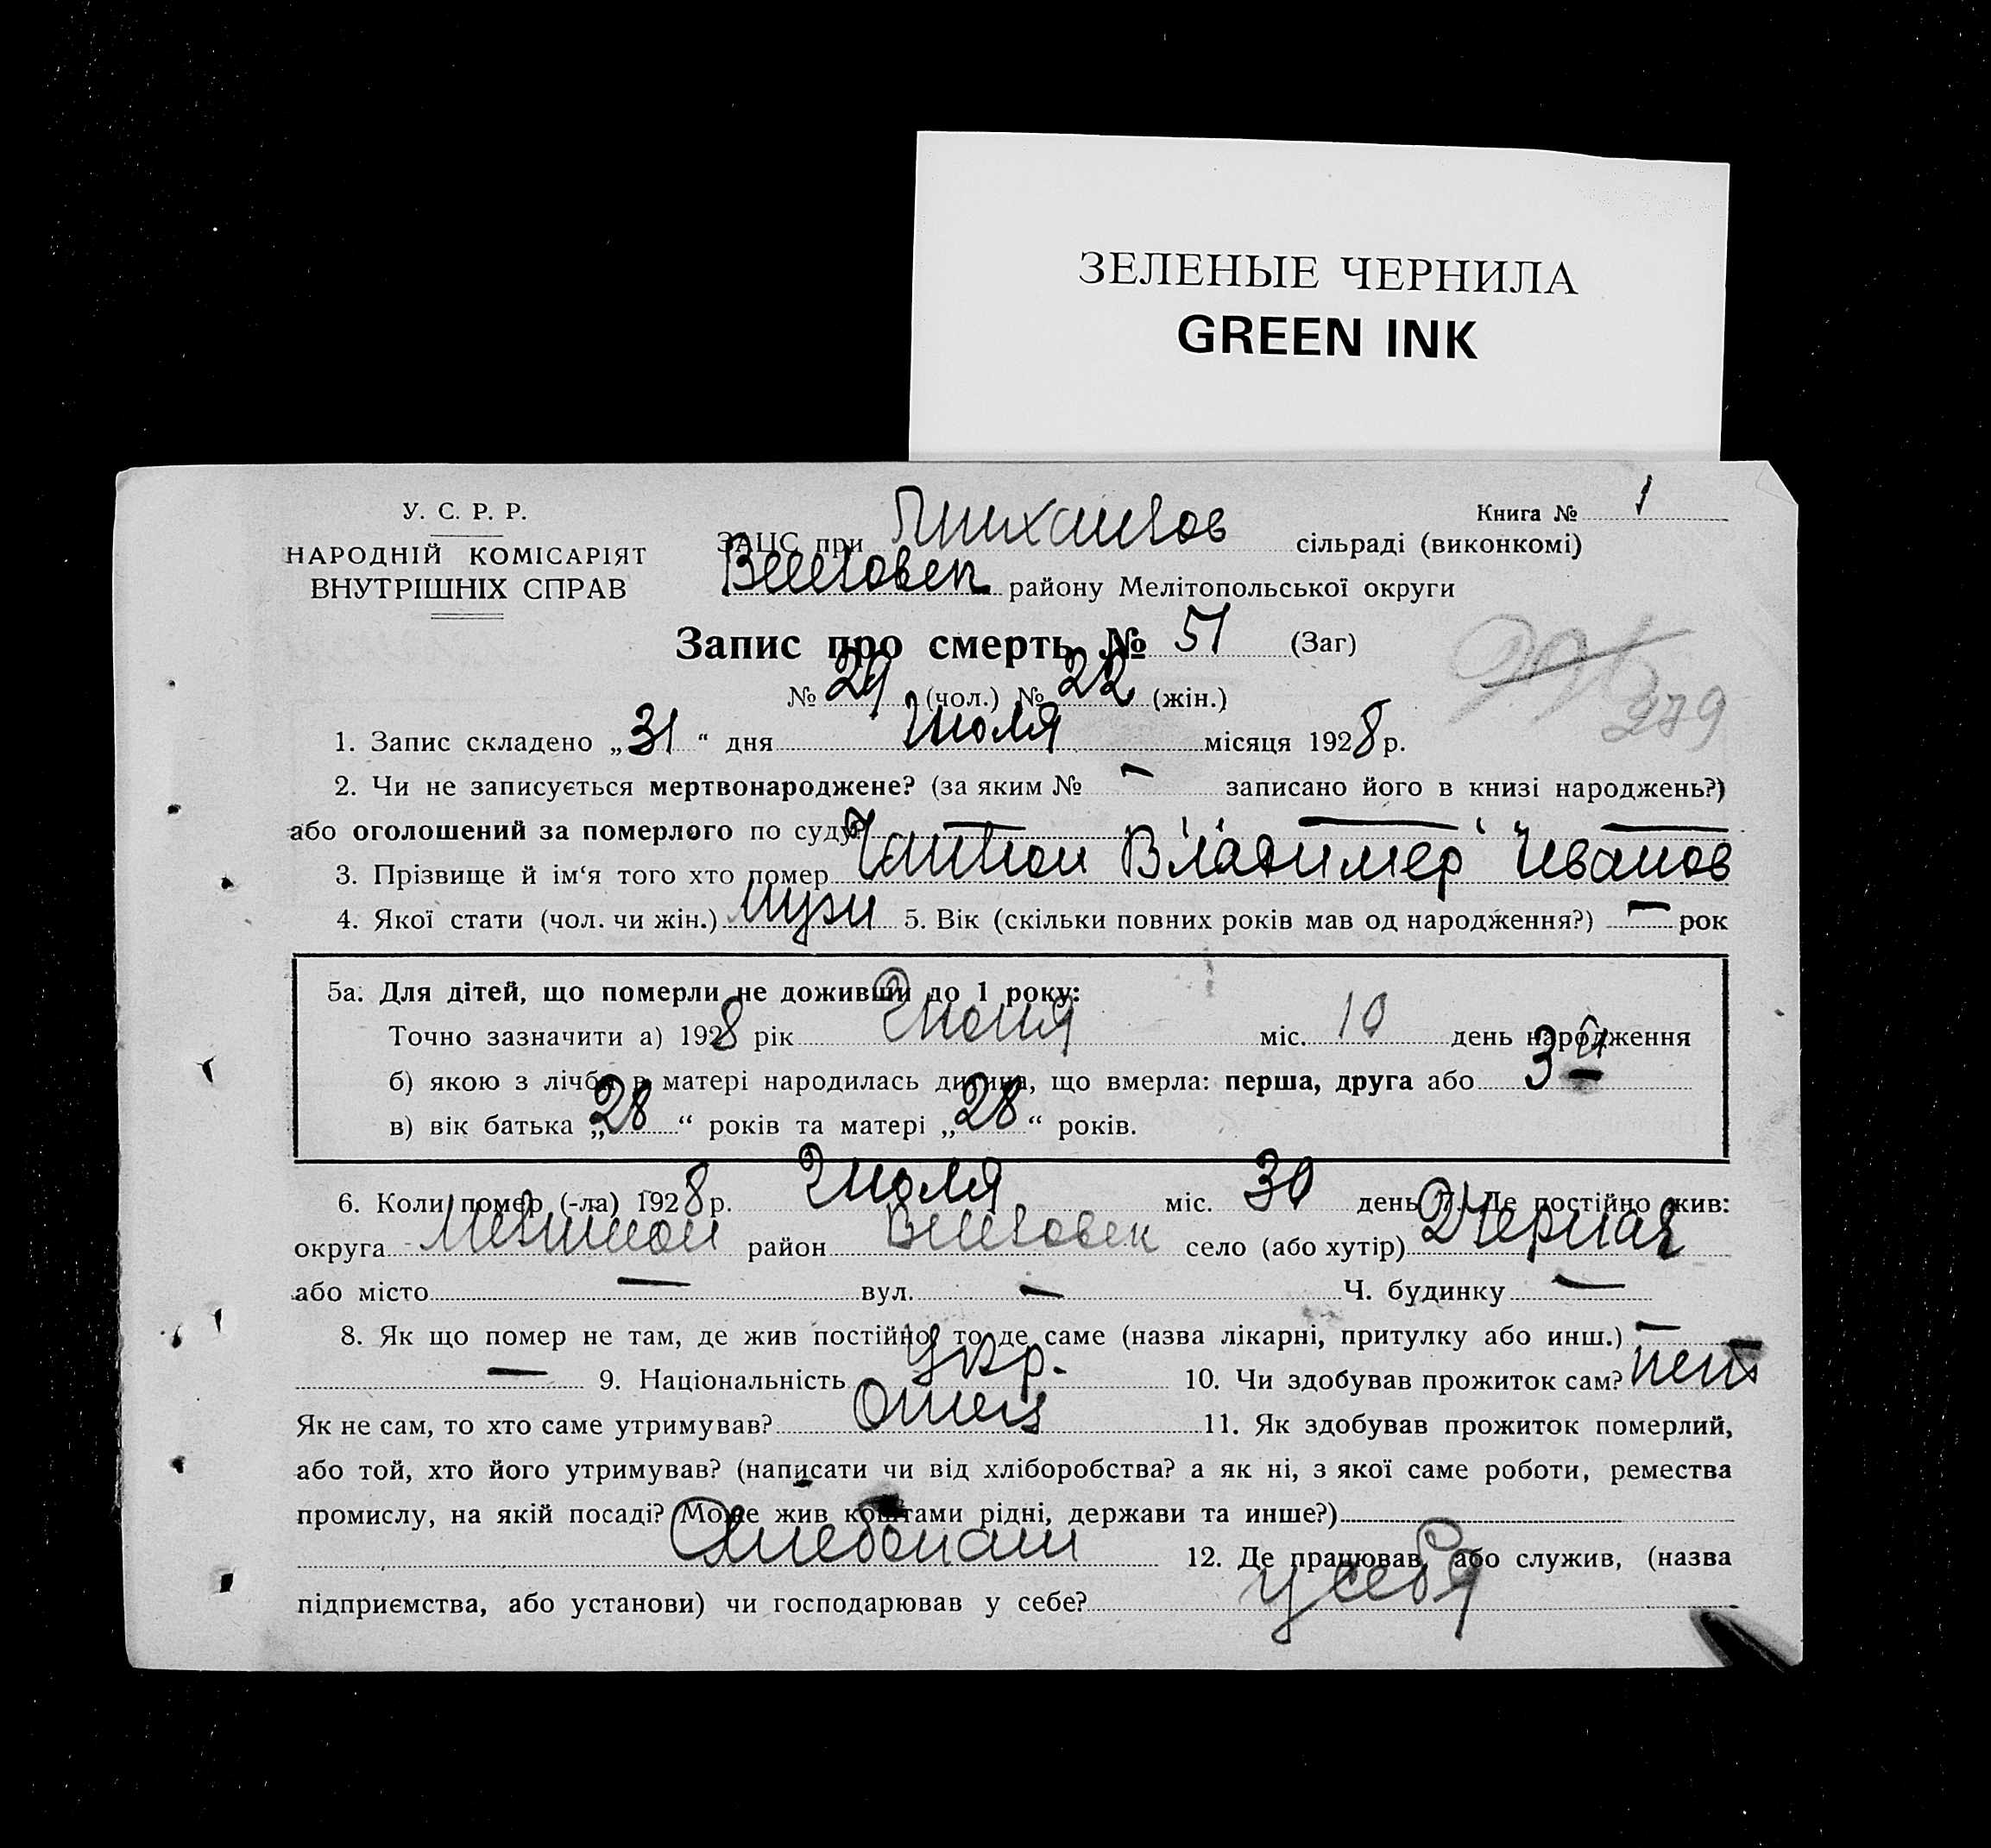 ЗЕЛЕНЫЕ ЧЕРНИЛА
GREEN INK
У. С. Р. Р.
НАРОДНІЙ КОМІСАРІЯТ
ВНУТРІШНІХ СПРАВ
Книга № 1
ЗАЦС при Михайлов сільраді (виконкомі)
Веселовск району Мелітопольської округи
Запис про смерть № 51 (Заг)
№ 29 (чол.) № 22 (жін.)
279
1. Запис складено „31“ дня Июля місяця 1928 р.
2. Чи не записується мертвонароджене? (за яким № — записано його в книзі народжень?)
або оголошений за померлого по суду? — — —
3. Прізвище й ім‘я того хто помер Владимер Иванов
4. Якої стати (чол. чи жін.) Муж 5. Вік (скільки повних років мав од народження?) — рок
5а. Для дітей, що померли не доживши до 1 року:
Точно зазначити а) 1928 рік міс. 10 день народження
б) якою з лічби в матері народилась дитина, що вмерла: перша, друга або 3-й
в) вік батька „28“ років та матері „28“ років.
6. Коли помер (-ла) 1928 р. Июля міс. 30 день 7. Де постійно жив:
округа район Веселовск село (або хутір) Черная
або місто — вул. — Ч. будинку —
8. Як що помер не там, де жив постійно, то де саме (назва лікарні, притулку або инш.) —
— 9. Національність Укр. 10. Чи здобував прожиток сам? нет
Як не сам, то хто саме утримував? Отец 11. Як здобував прожиток померлий,
або той, хто його утримував? (написати чи від хліборобства? а як ні, з якої саме роботи, ремества
промислу, на якій посаді? Може жив коштами рідні, держави та инше?)
Хлебопаш 12. Де працював, або служив, (назва
підприємства, або установи) чи господарював у себе? у себя